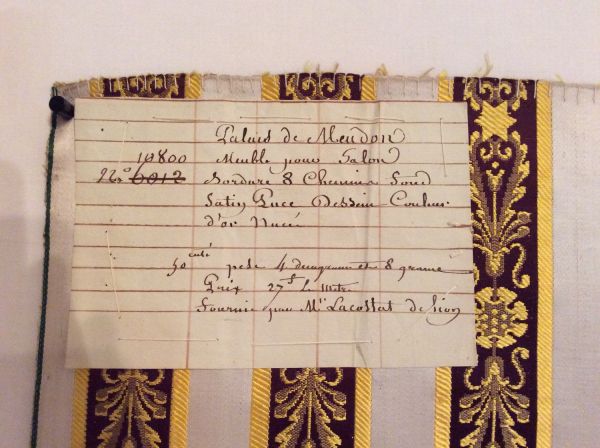 Palais de Meudon
19800 Meuble pour Salon
No 6012 Bordure 8 Chemins fond
Satin Puce Dessein Couleur
d'or Nuée
pese 4 decagrame et 8 grame
Prix 27f le metre
Fournie par Mr Lacostat de Lion